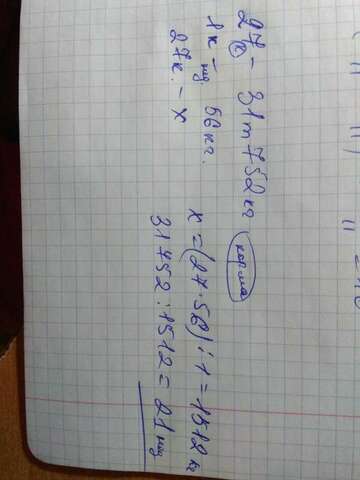 27к - 31т 752кг корма
1к = 56кг. нед.
27к. - х
х = (27·56) : 1 = 1512 кг
31752 : 1512 = 21 нед